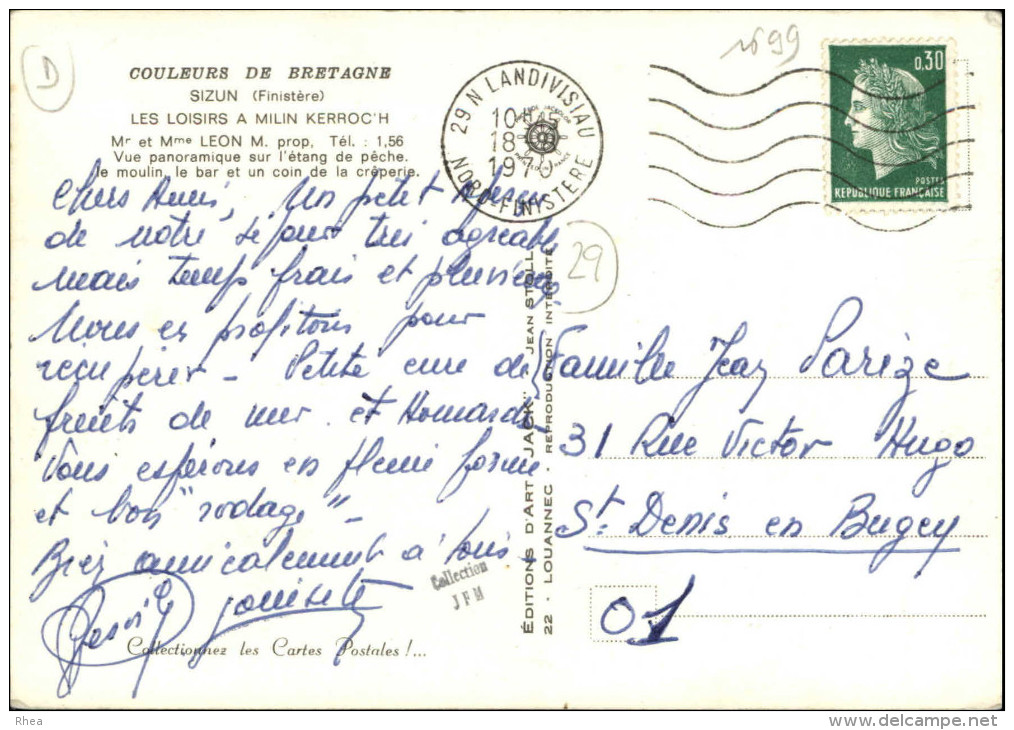 D
1699
COULEURS DE BRETAGNE
SIZUN (Finistère)
LES LOISIRS A MILIN KERROC'H
Mr et Mme LEON M. prop, Tél. : 1,56
Vue panoramique sur l'étang de pêche.
le moulin, le bar et un coin de la crêperie.
29 N LANDIVISIAU
18
1970
NORD-FINISTERE
0,30
POSTES
REPUBLIQUE FRANÇAISE
Chers Amis, Un petit aperçu
de notre séjour très agréable
mais temps frais et pluvieux
Nous en profitons pour
récupérer - Petite cure de
fruits de mer et Homards
Vous espérons en pleine forme
et bon "rodage" -
Bien amicalement à tous -
29
ÉDITIONS D'ART "JACK" JEAN STOLL
22 - LOUANNEC - REPRODUCTION INTERDITE
Famille Jean Parize
31 Rue Victor Hugo
St Denis en Bugey
01
Collection
JFM
Collectionnez les Cartes Postales !...
Rhea
http://www.delcampe.net